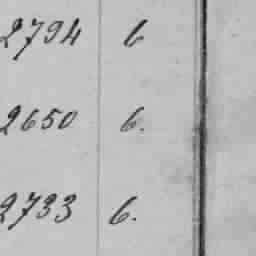 2794 6
2650 6.
2733 6.